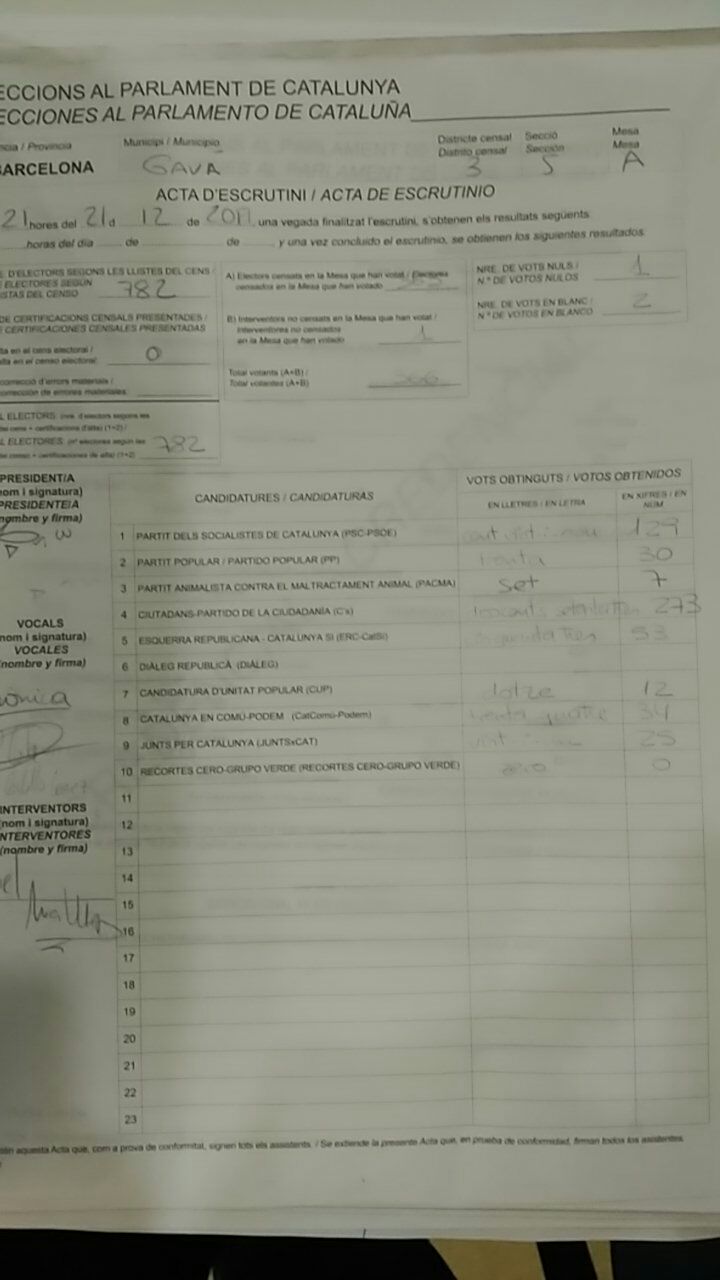 ECCIONS AL PARLAMENT DE CATALUNYA
ECCIONES AL PARLAMENTO DE CATALUÑA
ncia / Provincia Municipi / Municipio Districte censal Secció Mesa
Distrito censal Sección Mesa
BARCELONA GAVA 3 5 A
ACTA D'ESCRUTINI / ACTA DE ESCRUTINIO
21 hores del 21 d 12 de 2017, una vegada finalitzat l'escrutini, s'obtenen els resultats següents
horas del día de de y una vez concluido el escrutinio, se obtienen los siguientes resultados
E D'ELECTORS SEGONS LES LLISTES DEL CENS /
E ELECTORES SEGÚN
ISTAS DEL CENSO 782
DE CERTIFICACIONS CENSALS PRESENTADES /
E CERTIFICACIONES CENSALES PRESENTADAS
lta en el cens electoral /
lta en el censo electoral: 0
correcció d'errors materials /
orrección de errores materiales:
L ELECTORS: (nre. d'electors segons les
del cens + certificacions d'alta) (1+2) /
L ELECTORES: (nº electores según las
de censo + certificaciones de alta) (1+2) 782
A) Electors censats en la Mesa que han votat / Electores
censados en la Mesa que han votado
B) Interventors no censats en la Mesa que han votat /
Interventores no censados
en la Mesa que han votado 1
Total votants (A+B) /
Total votantes (A+B)
NRE. DE VOTS NULS /
N.º DE VOTOS NULOS 1
NRE. DE VOTS EN BLANC /
N.º DE VOTOS EN BLANCO 2
PRESIDENT/A
nom i signatura)
PRESIDENTE/A
nombre y firma)
VOCALS
nom i signatura)
VOCALES
(nombre y firma)
INTERVENTORS
(nom i signatura)
INTERVENTORES
(nombre y firma)
CANDIDATURES / CANDIDATURAS VOTS OBTINGUTS / VOTOS OBTENIDOS
EN LLETRES / EN LETRA EN XIFRES / EN NÚM
1 PARTIT DELS SOCIALISTES DE CATALUNYA (PSC-PSOE) 129
2 PARTIT POPULAR / PARTIDO POPULAR (PP) trenta 30
3 PARTIT ANIMALISTA CONTRA EL MALTRACTAMENT ANIMAL (PACMA) set 7
4 CIUTADANS-PARTIDO DE LA CIUDADANÍA (C's) 273
5 ESQUERRA REPUBLICANA - CATALUNYA SÍ (ERC-CatSí) 53
6 DIÀLEG REPUBLICÀ (DIÀLEG)
7 CANDIDATURA D'UNITAT POPULAR (CUP) dotze 12
8 CATALUNYA EN COMÚ-PODEM (CatComú-Podem) trenta quatre 34
9 JUNTS PER CATALUNYA (JUNTSxCAT) 25
10 RECORTES CERO-GRUPO VERDE (RECORTES CERO-GRUPO VERDE) zero 0
11
12
13
14
15
16
17
18
19
20
21
22
23
aquesta Acta que, com a prova de conformitat, signen tots els assistents. / Se extiende la presente Acta que, en prueba de conformidad, firman todos los asistentes